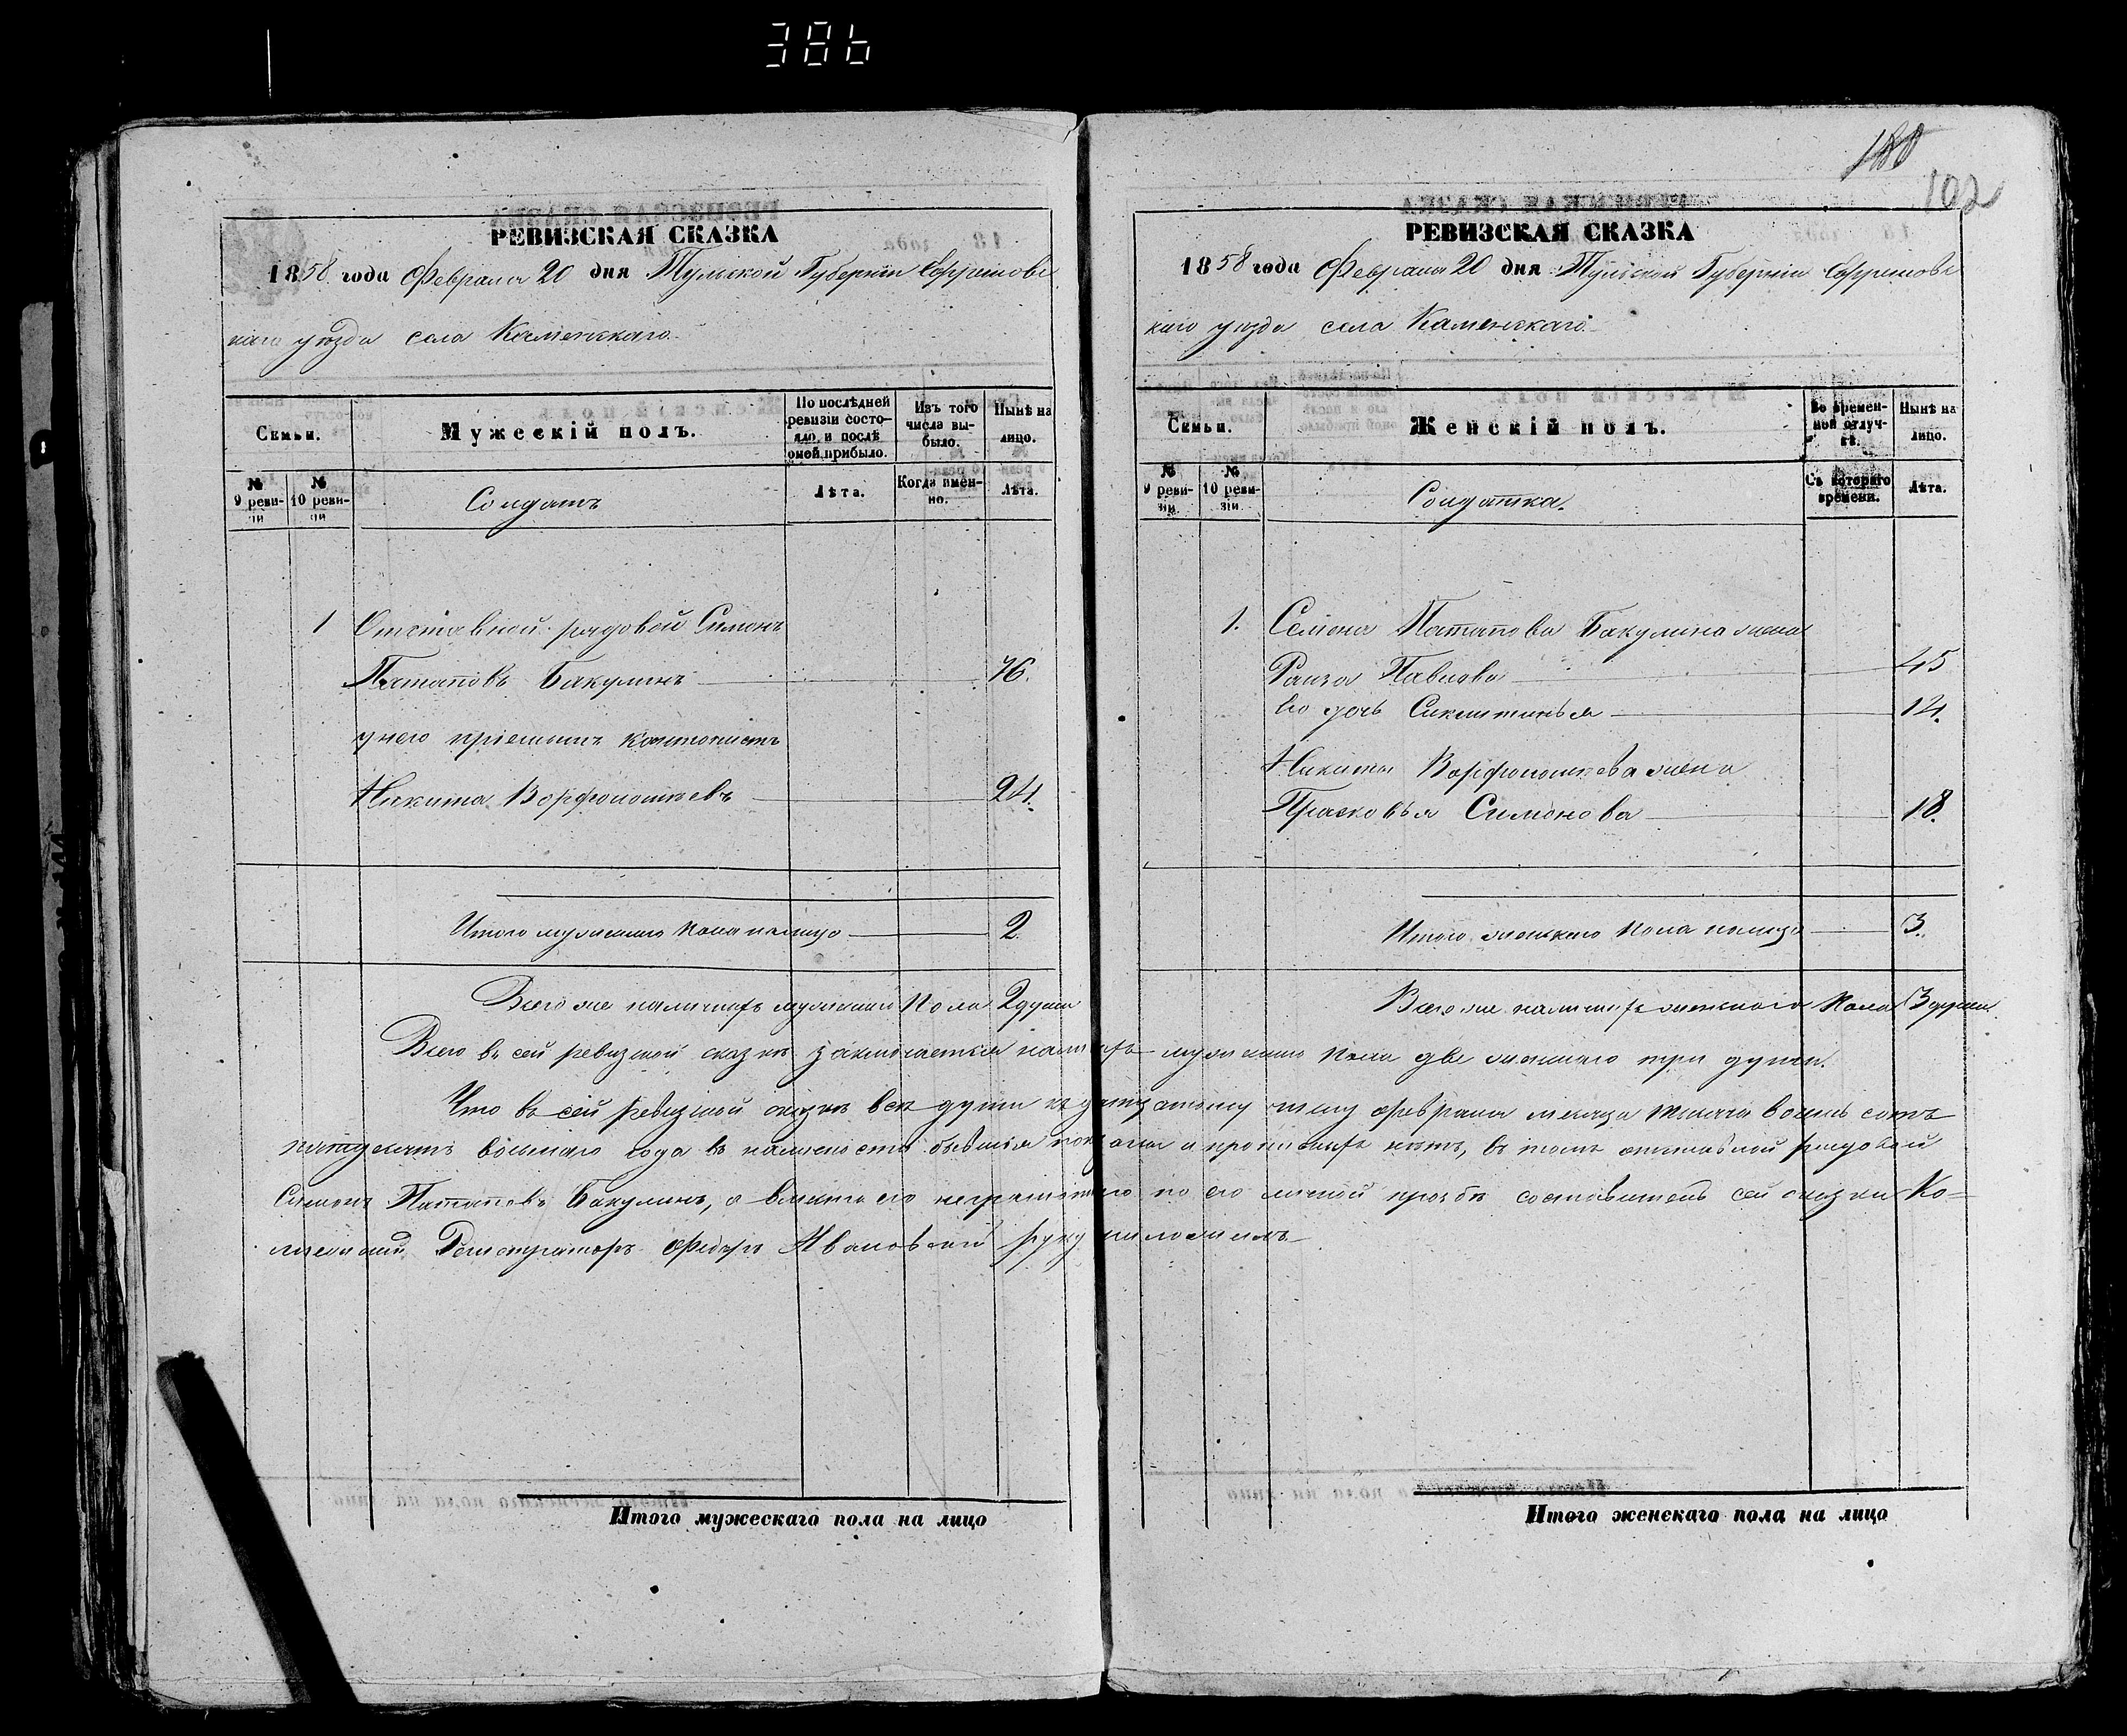 386
РЕВИЗСКАЯ СКАЗКА
1858 года Февраля 20 дня Тульской Губерніи Ефремовс
каго уѣзда села Каменскаго
Семьи.
Мужескій полъ.
По послѣдней ревизіи состояло и послѣ оной прибыло.
Изъ того числа выбыло.
Нынѣ на лицо.
№ 9 ревизіи
№ 10 ревизіи
Солдатъ
Лѣта.
Когда именно.
Лѣта.
1 Отставной рядовой Симонъ
Патаповъ Бакулинъ 76.
у него пріемышъ кантонистъ
Никита Ворфоломѣевъ 24.
Итого мужескаго пола налицо 2
Всего же наличныхъ мужескаго пола 2 души
180
102
РЕВИЗСКАЯ СКАЗКА
1858 года Февраля 20 дня Тульской Губерніи Ефремовс
каго уѣзда села Каменскаго
Семьи.
Женскій полъ.
Во временной отлучкѣ.
Нынѣ на лицо.
№ 9 ревизіи.
№ 10 ревизіи.
Солдатка.
Съ котораго времени.
Лѣта.
1. Семена Патапова Бакулина жена
Павлова 45
Его дочь Сиклитинья 14.
Никиты Ворфоломѣева жена
Прасковья Симонова 18.
Итого женскаго пола налицо 3.
Всего же наличныхъ женскаго пола 3 души
Всего въ сей ревизской сказкѣ заключается наличныхъ мужескаго пола две женскаго три души.
Что въ сей ревизской сказкѣ всѣ души къ двадцатому числу февраля месяца тысяча восемь сотъ
пятьдесятъ восьмаго года въ наличности бывшія показаны и прописныхъ нѣтъ, въ томъ отставной рядовой
Симонъ Патаповъ Бакулинъ, а вместо его неграмотнаго по его личной прозбѣ составитель сей сказки Ко=
лежский Регистраторъ Федоръ Ивановский руку приложилъ
Итого мужескаго пола на лицо
Итого женскаго пола на лицо